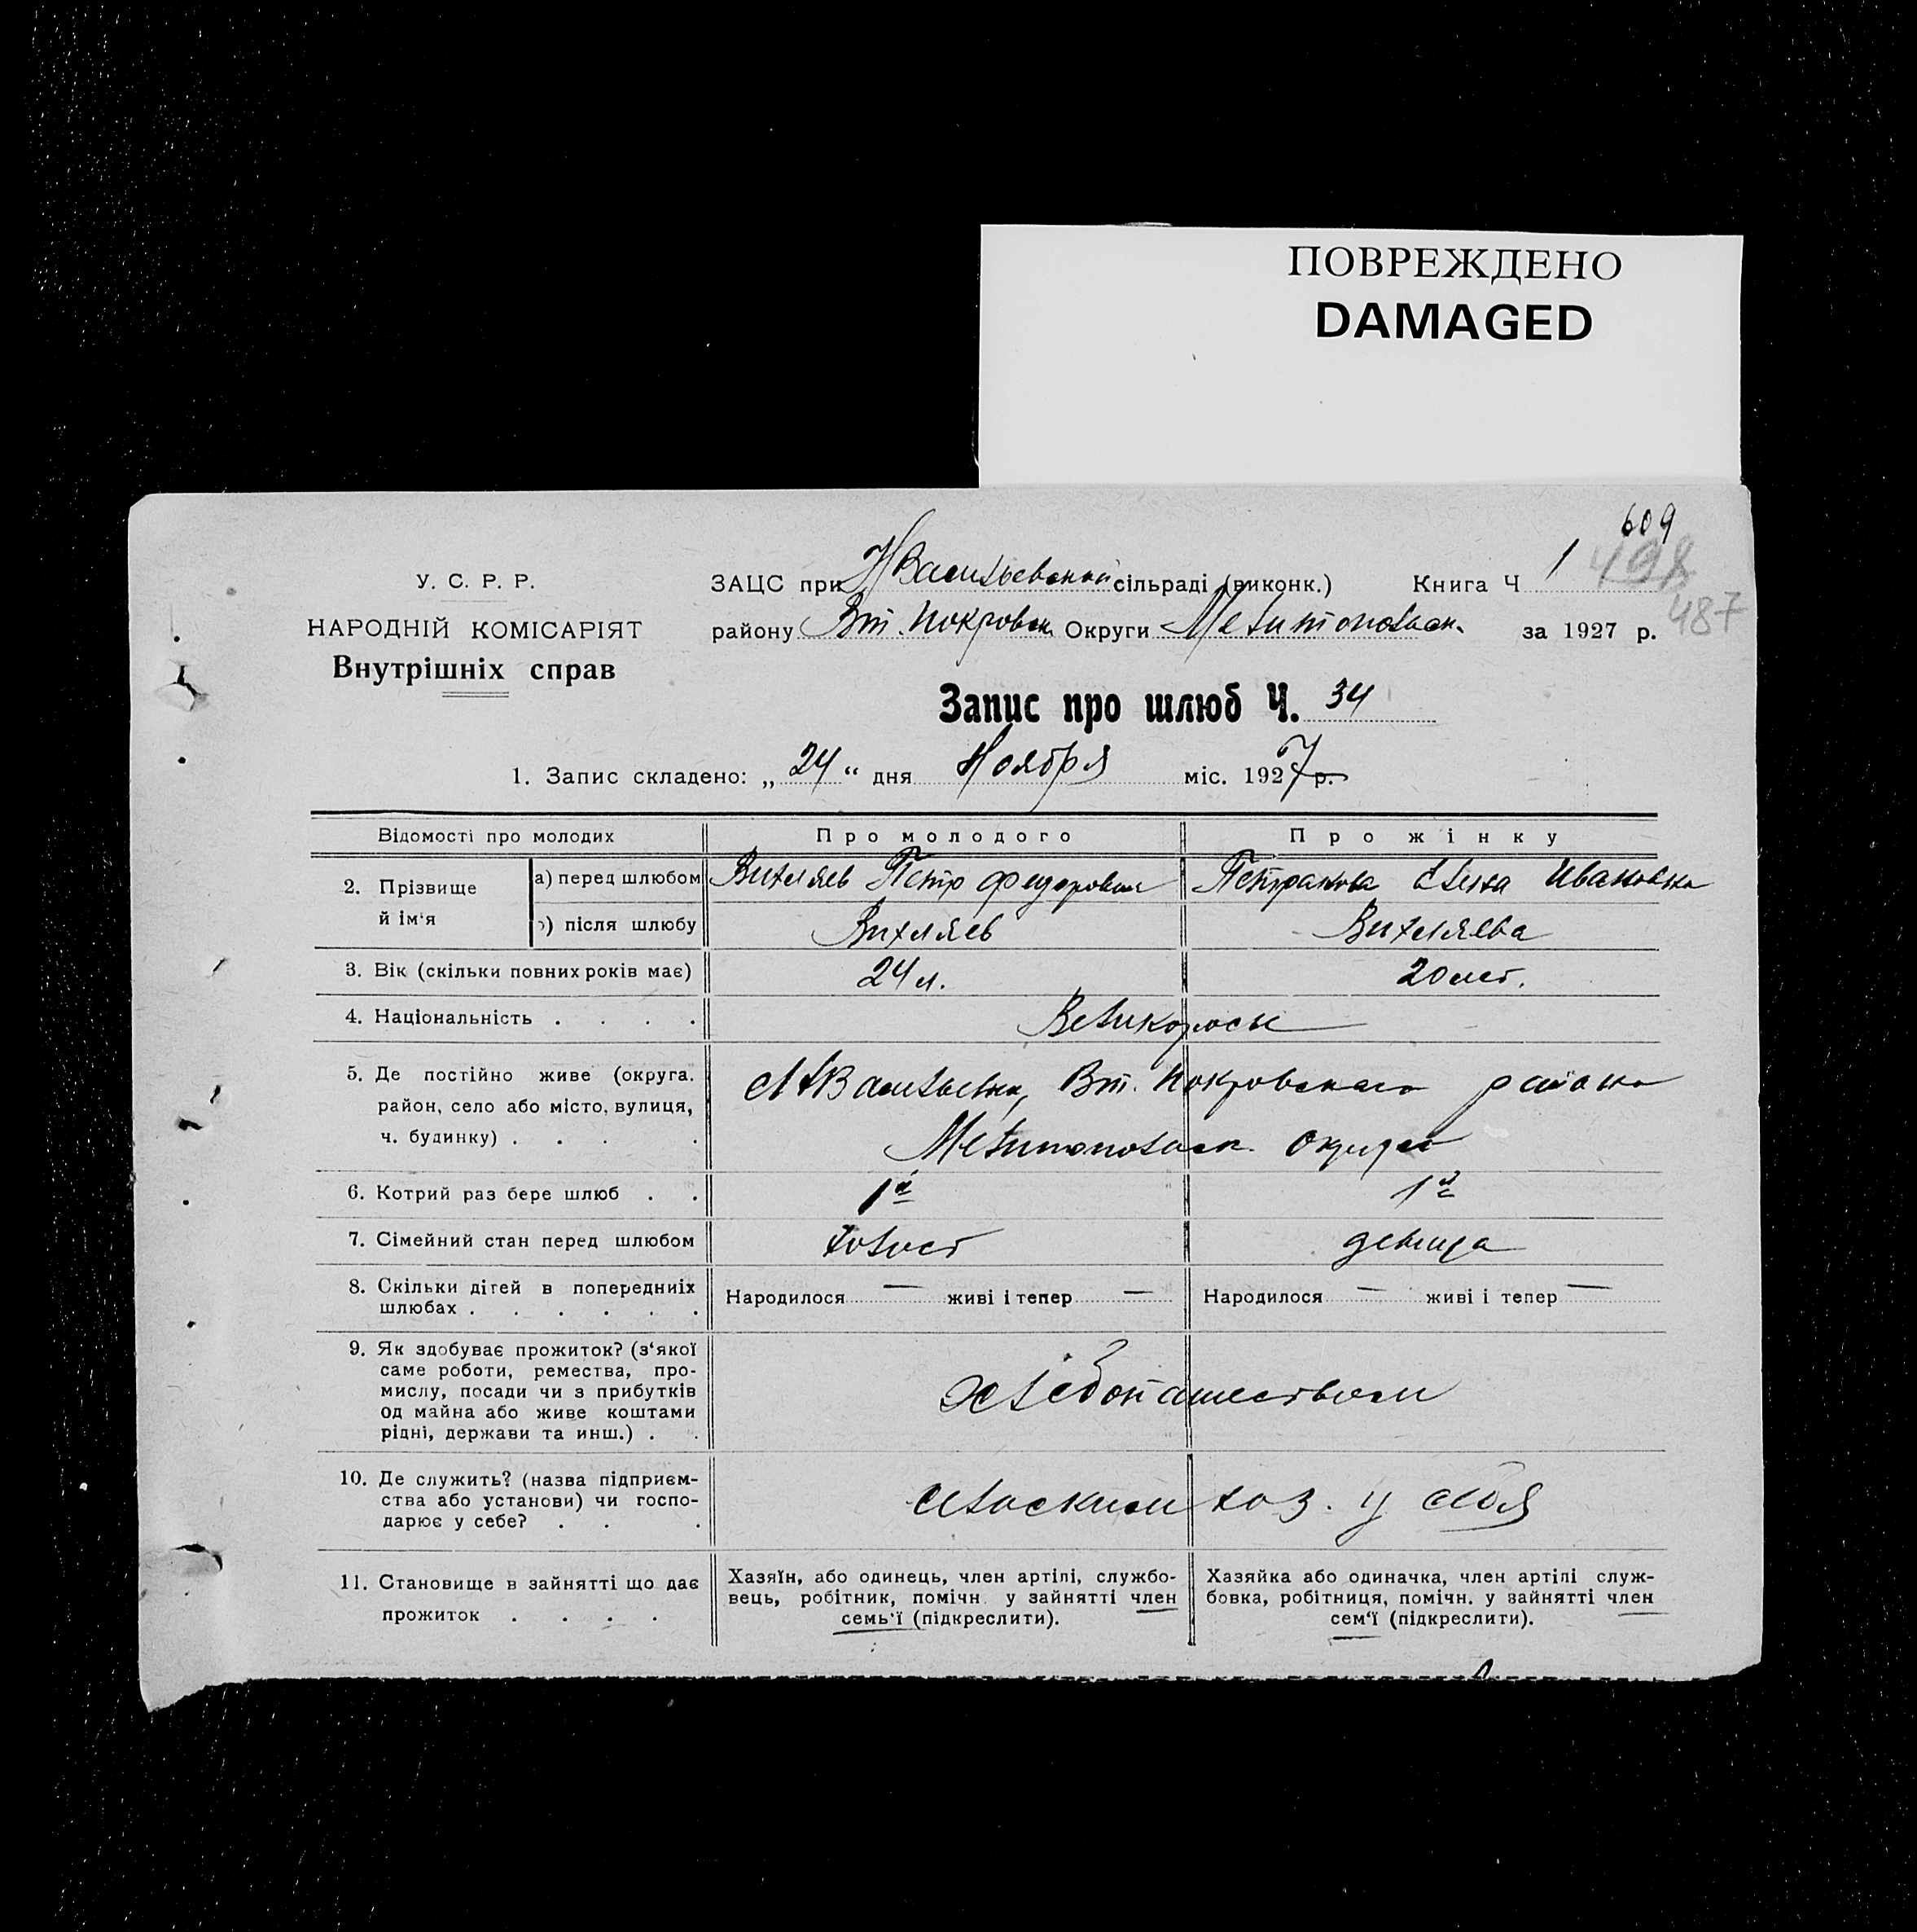 ПОВРЕЖДЕНО
DAMAGED
609
498
487
У. С. Р. Р.
НАРОДНІЙ КОМІСАРІЯТ
Внутрішніх справ
ЗАЦС при НВасильевской сільраді (виконк.) Книга Ч 1
району Вт. Покровск. Округи Мелитопольск. за 1927 р.
Запис про шлюб Ч. 34
1. Запис складено: „ 24 “ дня Ноября міс. 1927 р.
Відомості про молодих Про молодого Про жінку
2. Прізвище й ім'я а) перед шлюбом Вихляев Петр Федорович Петракова Елена Ивановна
б) після шлюбу Вихляев Вихляева
3. Вік (скільки повних років має) 24 л. 20 лет.
4. Національність . . . . Великороссы
5. Де постійно живе (округа,
район, село або місто, вулиця,
ч. будинку) . . . .
НВасильевка, Вт. Покровского района
Мелитопольск. округа
6. Котрий раз бере шлюб . . 1й 1й
7. Сімейний стан перед шлюбом холост девица
8. Скільки дітей в попередніх
шлюбах . . . . . .
Народилося — живі і тепер — Народилося — живі і тепер —
9. Як здобуває прожиток? (з'якої
саме роботи, ремества, про-
мислу, посади чи з прибутків
од майна або живе коштами
рідні, держави та инш.) . .
хлебопашеством
10. Де служить? (назва підприєм-
ства або установи) чи госпо-
дарює у себе? . . .
сельским хоз. у себя
11. Становище в зайнятті що дає
прожиток . . . .
Хазяїн, або одинець, член артілі, службо-
вець, робітник, помічн. у зайнятті член
семь'ї (підкреслити).
Хазяйка або одиначка, член артілі служ-
бовка, робітниця, помічн. у зайнятті член
сем'ї (підкреслити).